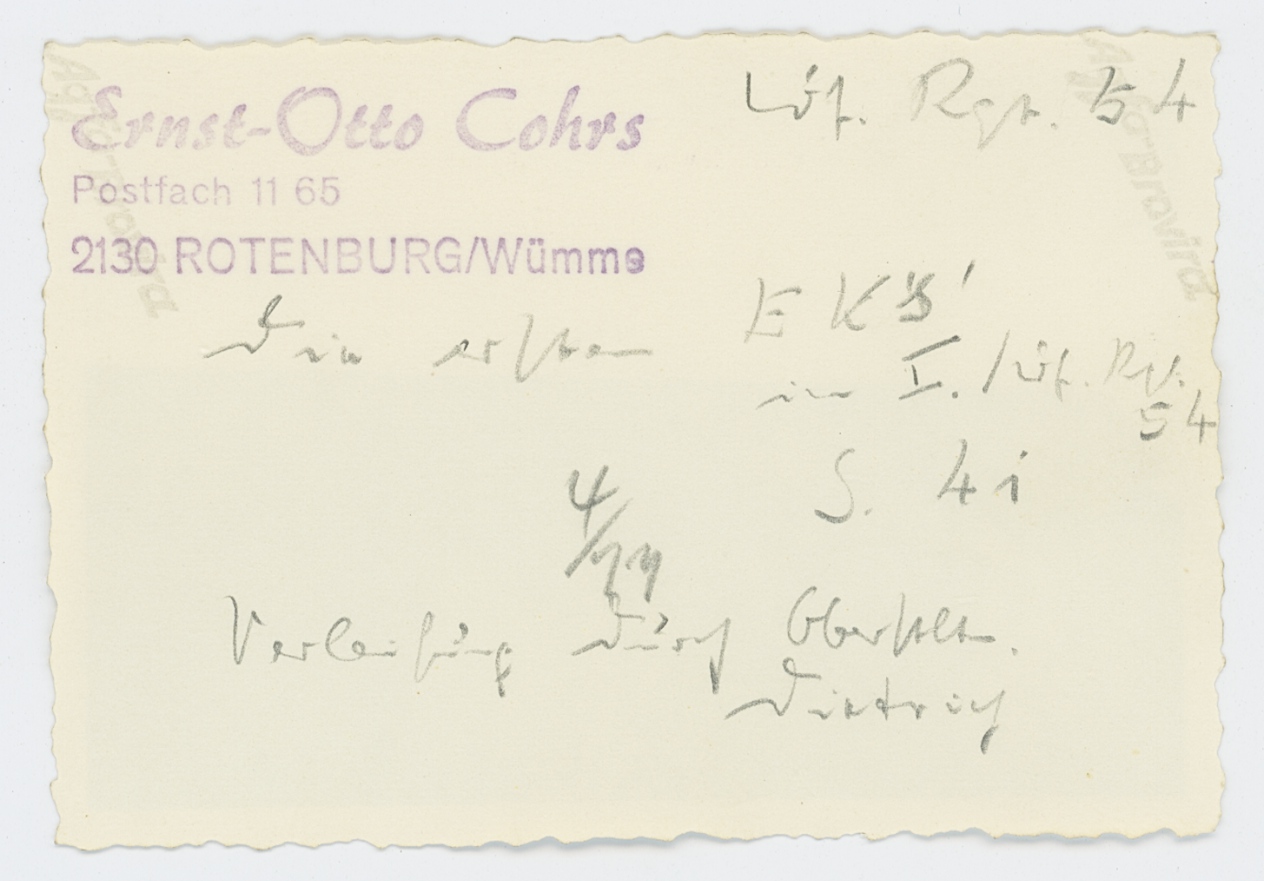 Ernst-Otto Cohrs
Postfach 11 65
2130 ROTENBURG/Wümme
Lüf. Rgt. 54
Die ersten EK's'
im I./Lüf. Rgt.
54
S. 41
4/
Verleihung durch Oberstlt.
Dietrich
Agfa-Brovira
Agfa-Brovira